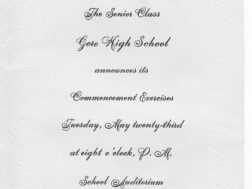 The Senior Class
Gore High School
announces its
Commencement Exercises
Tuesday, May twenty-third
at eight o'clock, P. M.
School Auditorium